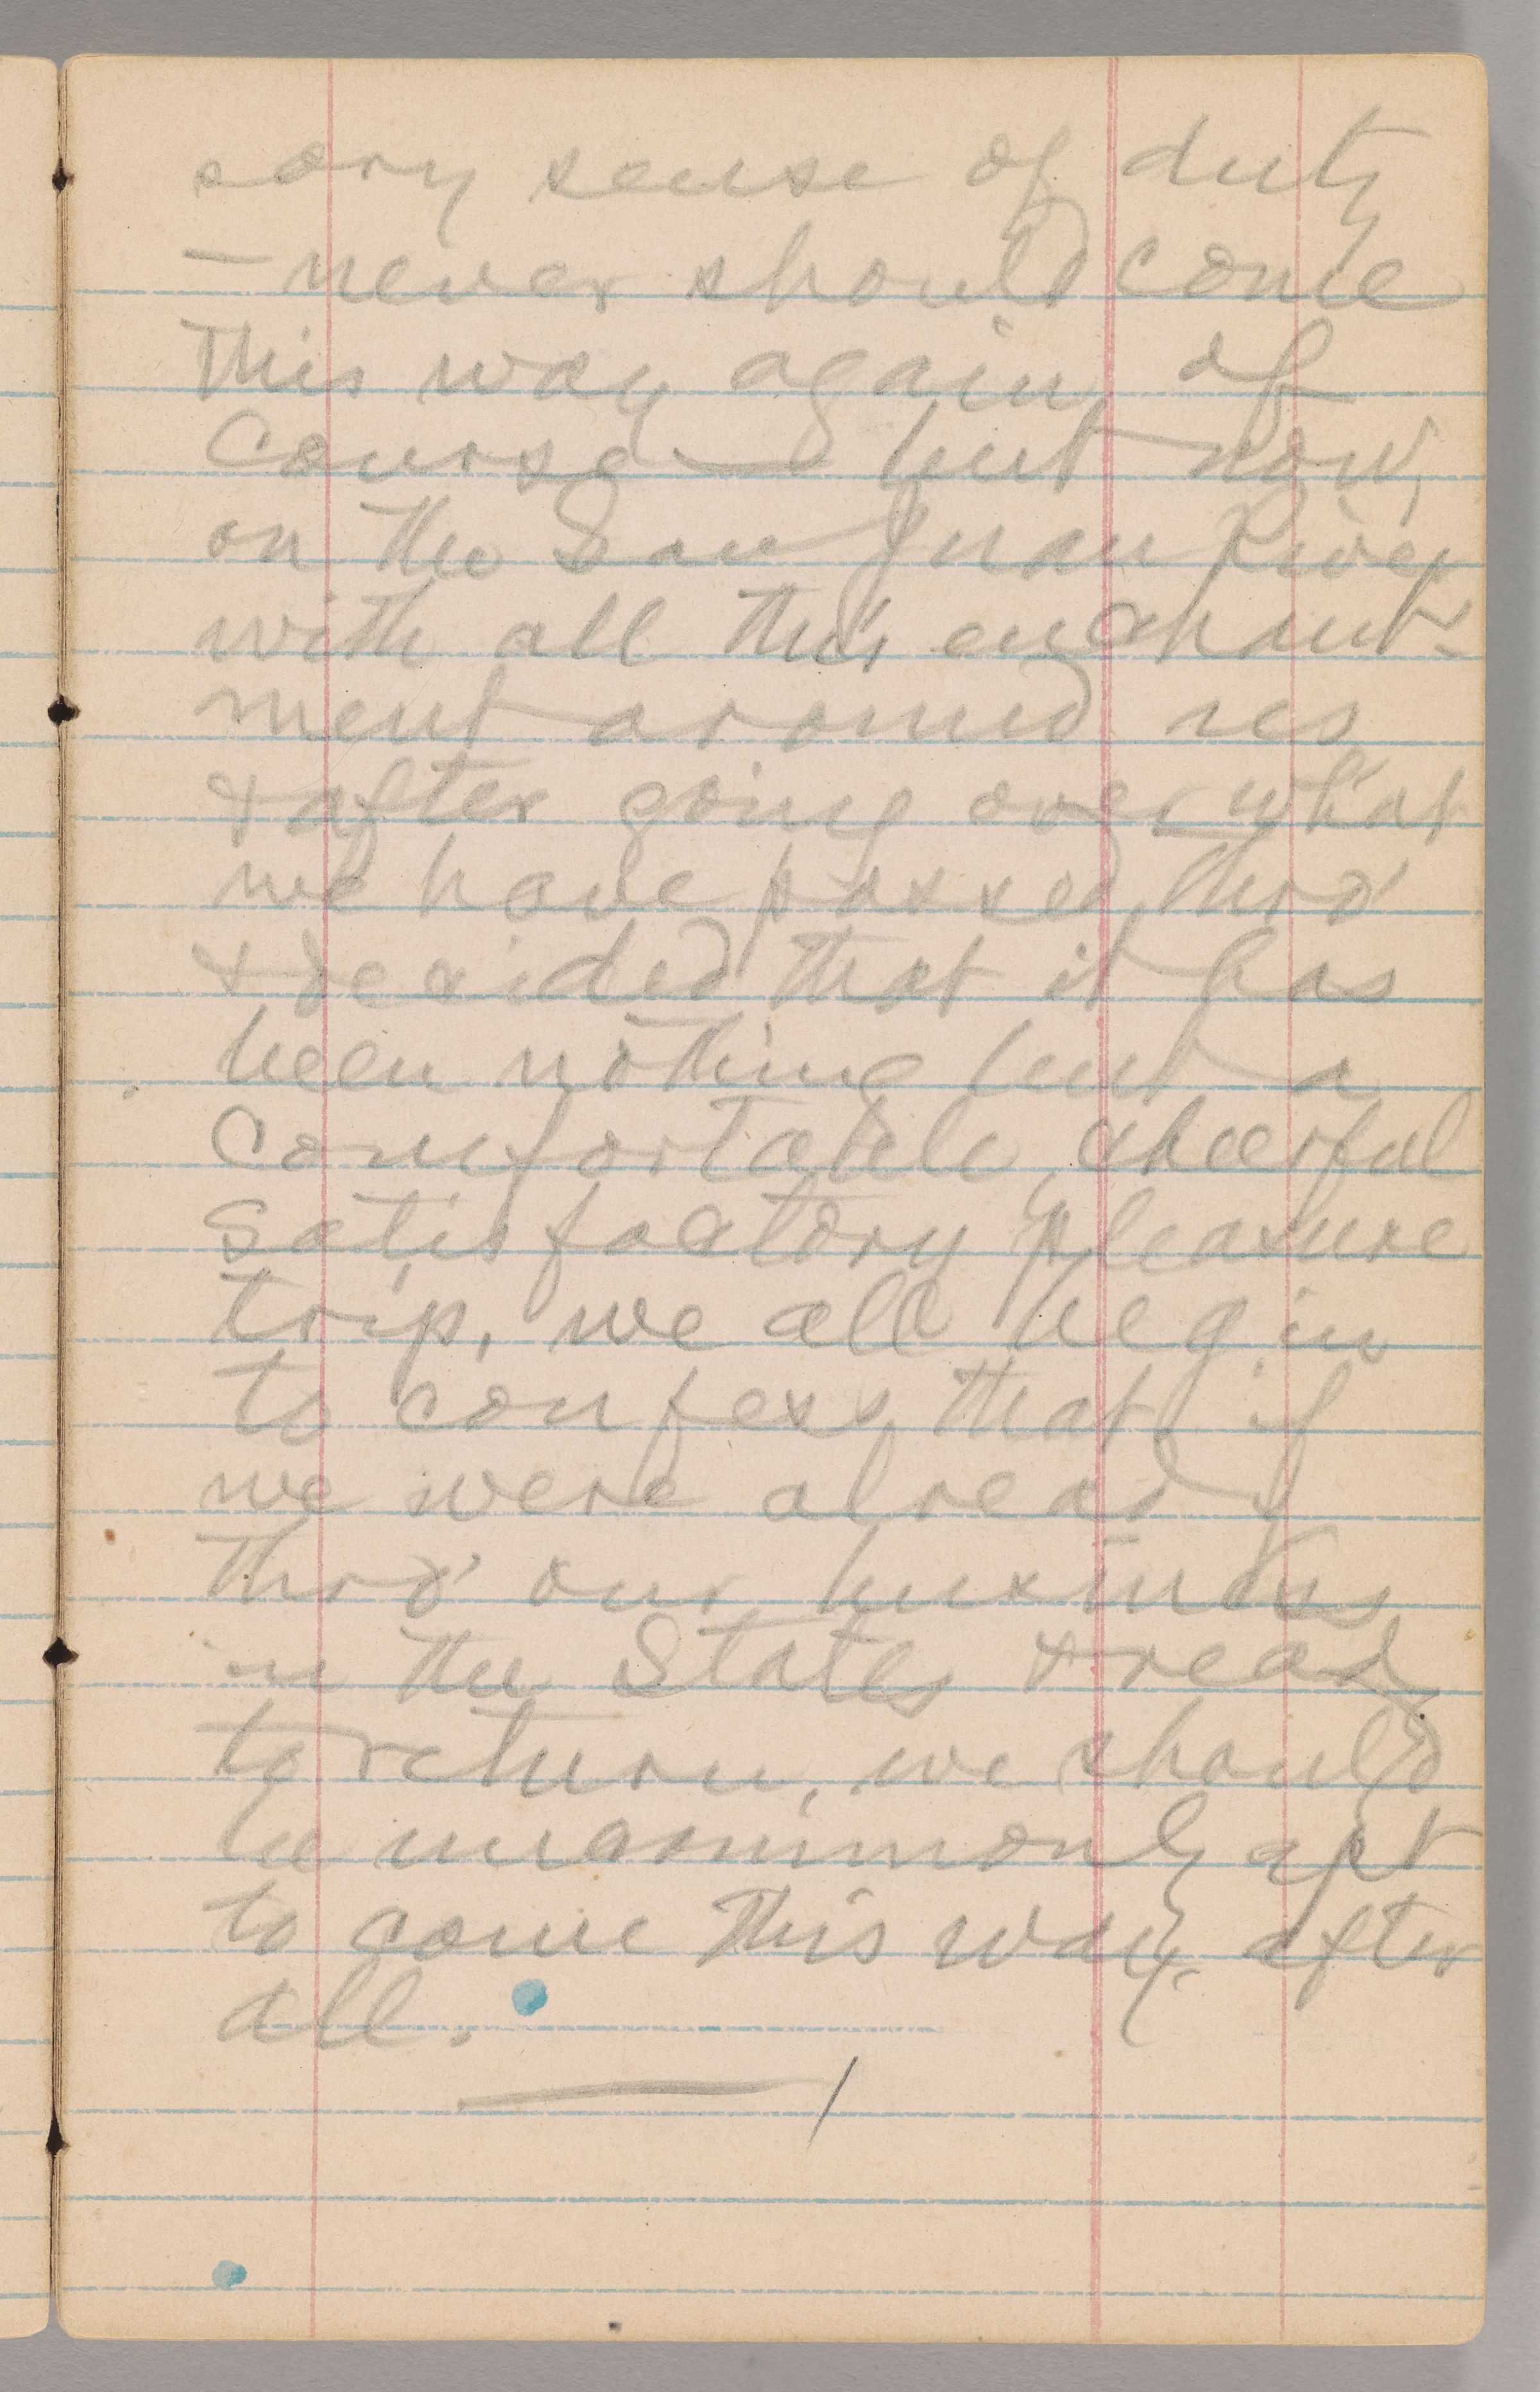 sory sense of duty
— never should come
this way again, of
course — but now,
on the San Juan River
with all this enchant-
ment around us
& after going over what
we have passed thro'
& decided that it has
been nothing but a
comfortable, cheerful
satisfactory pleasure
trip, we all begin
to confess that if
we were already
thro' our business
in the States & ready
to return, we should
be uncommonly apt
to come this way after
all.